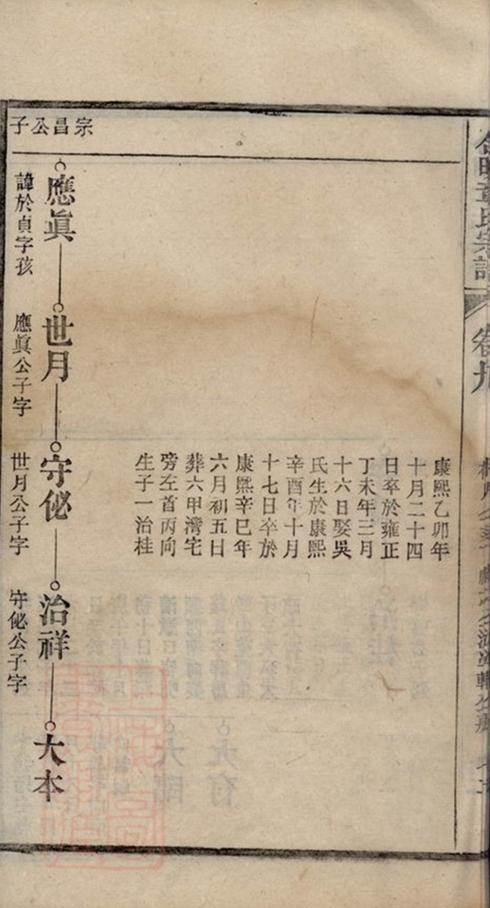 康熙乙卯年
十月二十四
日卒於雍正
丁未年三月
十六日娶吳
氏生於康熙
辛酉年十月
十七日卒於
康熙辛巳年
六月初五日
葬六甲灣宅
旁左首丙向
生子一治桂
宗昌公子
應眞
世月
守佖
治祥
大本
諱於貞字孩
應眞公子字
世月公子字
守佖公子字